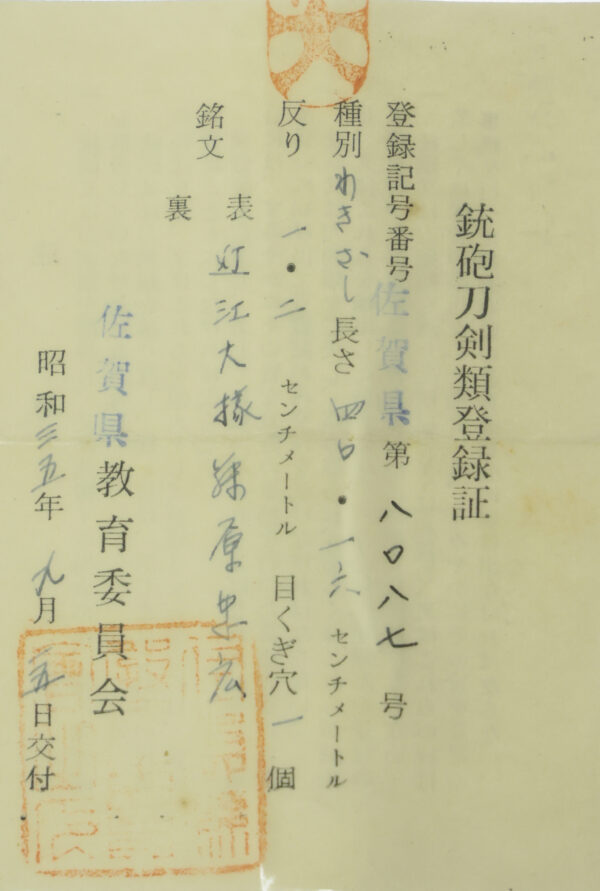 銃砲刀剣類登録証
登録記号番号 佐賀県 第 八〇八七 号
種別 わきざし 長さ 四〇・一六 センチメートル
反り 一・二 センチメートル 目くぎ穴 一 個
銘文 表 近江大掾藤原忠広
裏
佐賀県教育委員会
昭和三五年九月 五日交付